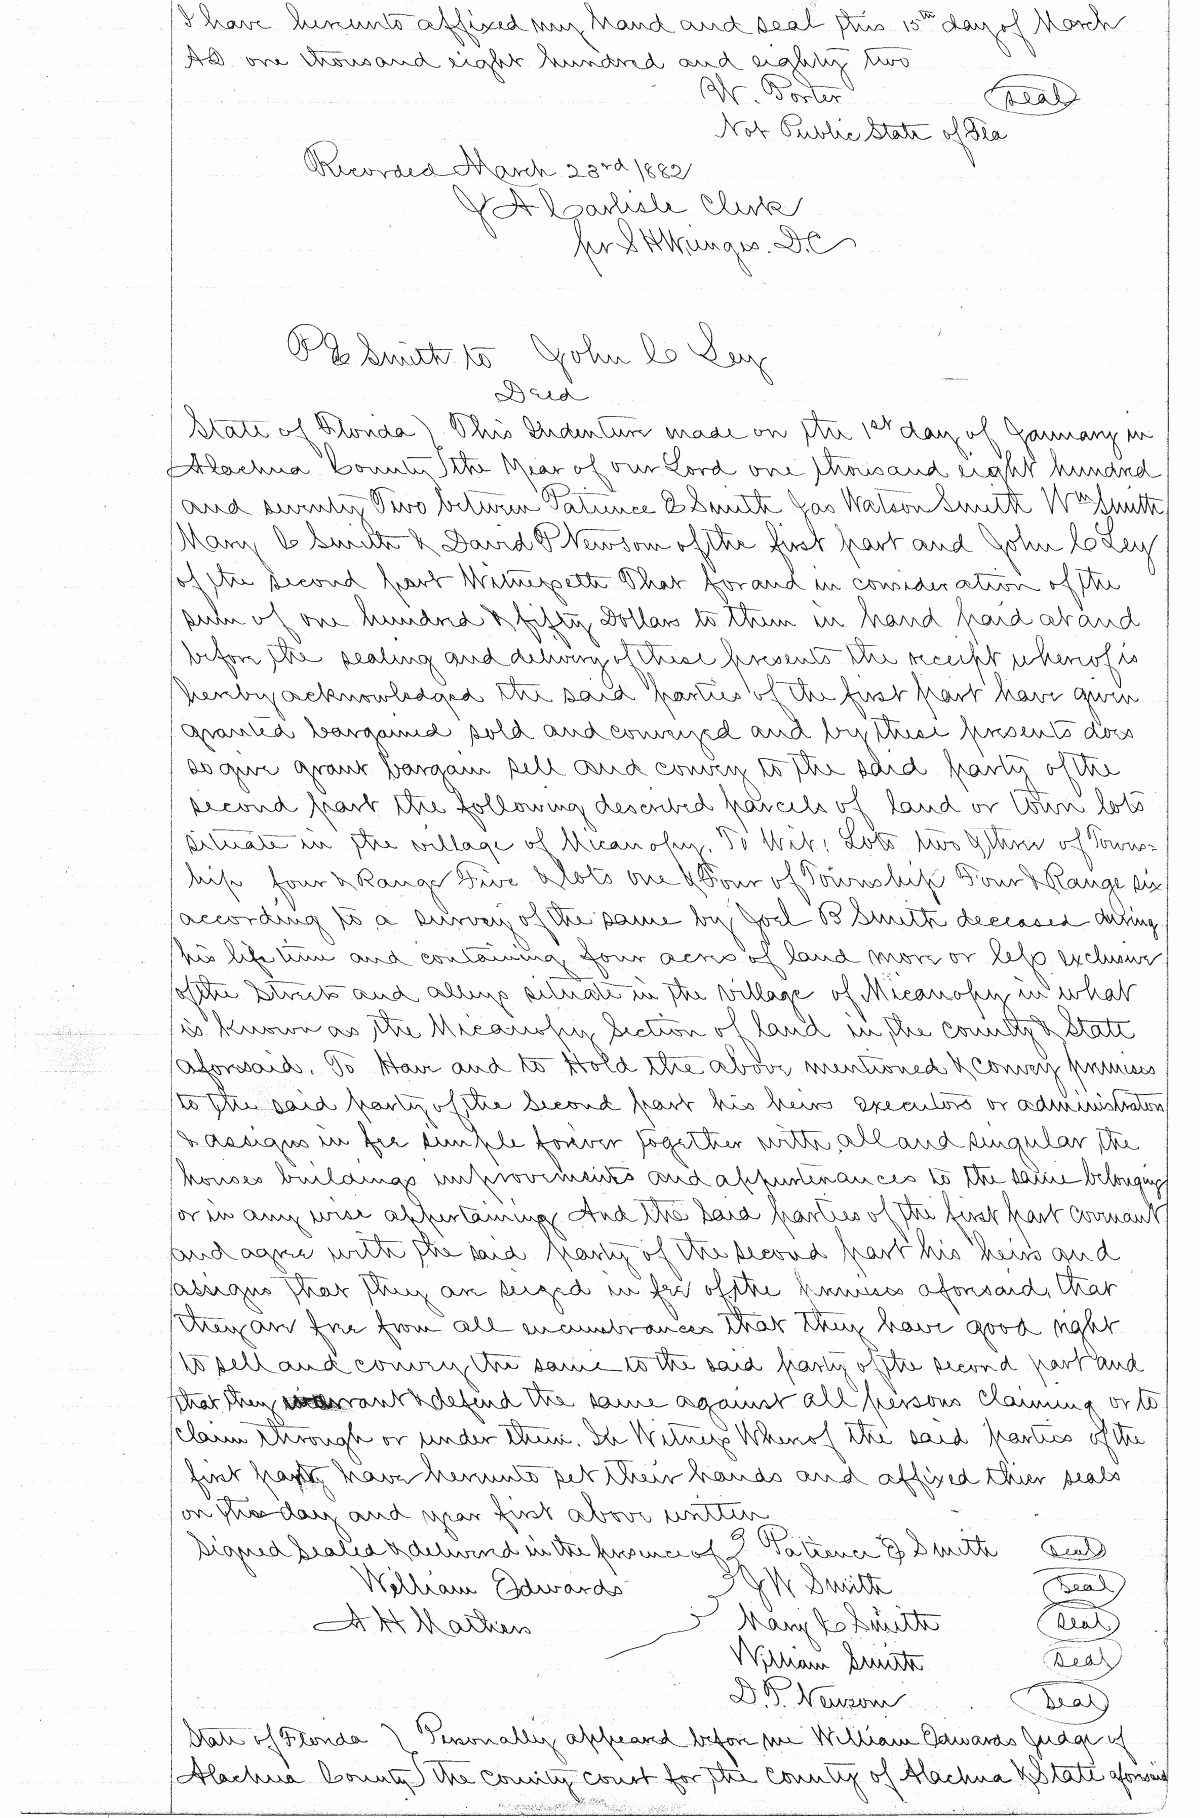 I have hereunto affixed my hand and seal this 15th day of March
AD one thousand eight hundred and eighty two
W. Porter (seal)
Not Public State of Fla
Recorded March 23rd 1882
J A Carlisle Clerk
pr S H Wienges. D.C
P E Smith to John C Ley
Deed
State of Florida ) This Indenture made on the 1st day of January in
Alachua County ) the Year of our Lord one thousand eight hundred
and seventy Two between Patience E Smith Jas Watson Smith Wm Smith
Mary C Smith & David P Newsom of the first part and John C Ley
of the second part Witnesseth That for and in consideration of the
sum of one hundred & fifty Dollars to them in hand paid at and
before the sealing and delivery of these presents the receipt whereof is
hereby acknowledged the said parties of the first part have given
granted bargained sold and conveyed and by these presents does
so give grant bargain sell and convey to the said party of the
second part the following described parcels of land or town lots
situate in the village of Micanopy. To Wit: Lots two & three of Towns=
hip four & Range Five & lots one & Four of Township Four & Range six
according to a survey of the same by Joel B Smith deceased during
his life time and containing four acres of land more or less exclusive
of the Streets and alleys situate in the village of Micanopy in what
is known as the Micanopy Section of land in the county & State
aforesaid. To Have and to Hold the above mentioned & convey premises
to the said party of the Second part his heirs executors or administrators
& assigns in fee simple forever together with all and singular the
houses buildings improvements and appurtenances to the same belonging
or in any wise appertaining And the Said parties of the first part covenant
and agree with the said party of the second part his heirs and
assigns that they are seized in fee of the premises aforesaid, that
they are free from all encumbrances that they have good right
to sell and convey the same to the said party of the second part and
that they warrant & defend the same against all persons claiming or to
claim through or under them. In Witness Whereof the said parties of the
first party have hereunto set their hands and affixed thier seals
on the day and year first above written
Signed Sealed & delivered in the presence of Patience E Smith (seal)
William Edwards J W Smith (seal)
A H Mathers Mary C Smith (seal)
William Smith (seal)
D. P. Newsom (seal)
State of Florida ) Personally appeared before me William Edwards Judge of
Alachua County ) the county court for the county of Alachua & State aforesaid